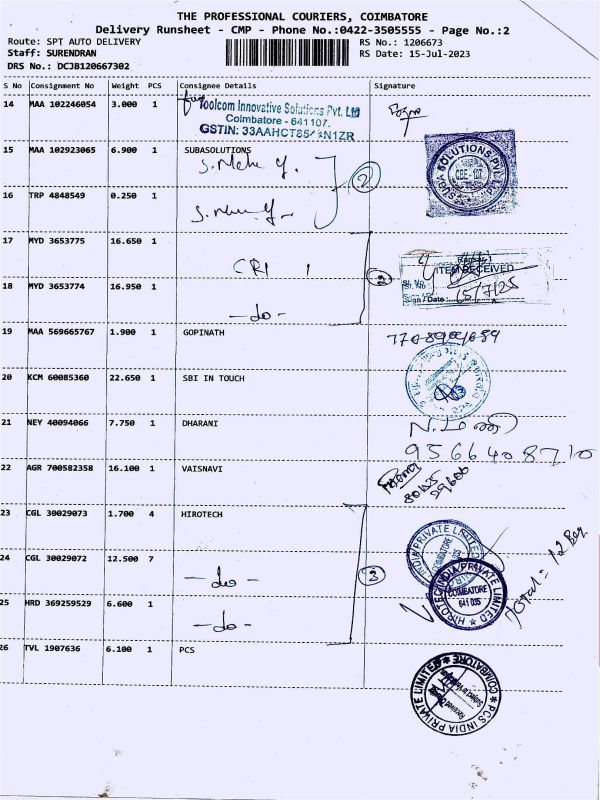 THE PROFESSIONAL COURIERS, COIMBATORE
Delivery Runsheet - CMP - Phone No.:0422-3505555 - Page No.:2
Route: SPT AUTO DELIVERY
RS No.: 1206673
Staff: SURENDRAN
RS Date: 15-Jul-2023
DRS No.: DCJB120667302
S No Consignment No Weight PCS Consignee Details Signature
14 MAA 102246054 3.000 1
Toolcom Innovative Solutions Pvt. Ltd
Coimbatore - 641107.
15 MAA 102923065 6.900 1 SUBASOLUTIONS
2
CBE - 107
16 TRP 4848549 0.250 1
17 MYD 3653775 16.650 1
CRI 1
ITEM RECEIVED
Sign / Date 15/7/25
18 MYD 3653774 16.950 1
- do -
19 MAA 569665767 1.900 1 GOPINATH
20 KCM 60085360 22.650 1 SBI IN TOUCH
21 NEY 40094066 7.750 1 DHARANI
9566408710
22 AGR 700582358 16.100 1 VAISNAVI
23 CGL 30029073 1.700 4 HIROTECH
24 CGL 30029072 12.500 7
- do -
3
HIROTEC INDIA PRIVATE LIMITED
COIMBATORE
641 035
25 HRD 369259529 6.600 1
- do -
26 TVL 1907636 6.100 1 PCS
PCS INDIA PRIVATE LIMITED
COIMBATORE